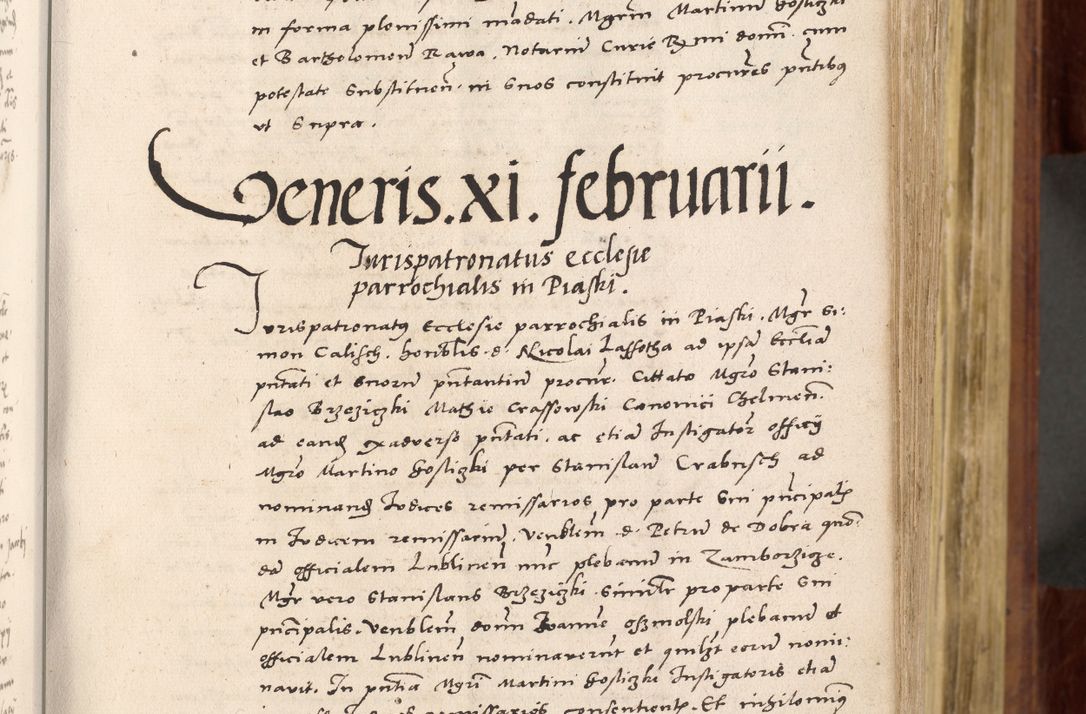 in forma plenissimi mādati. Mgrm̄ Martinū Gosliczki
et Bartholomeū Rawa. Notariū Curie R̄mi domī. cum
potestate substituen̄. in suos constituit procurēs pn̄tibus
ut supra.
Veneris. xi. februarii.
Jurispatronatus ecclesie
parrochialis in Piaski.
Jurispatronatus Ecclesie parrochialis in Piaski. Mgr̄ Si:
mon Calisch. honōblis d. Nicolai Lassotha ad ipsā Eccliā
pn̄tati et suorū pn̄tantiū procur̄. Cittato Mgrō Stani:
slao Brzeziczki Mathie Crassowski Canonici Chelmen̄.
ad eand̄ exadverso pn̄tati. ac etiā Instigator̄ officij
Mgrō Martino Gosliczki per Stanislaū Crabusch ad
nominand̄ Judices remissarios pro parte sui pn̄cipalis
in Judicem remissariū. Venblēm d. Petrū de Dobra quō:
dā officialem Lublinen̄ nūc plebanū in Zamborzicze.
Mgr̄ vero Stanislaus Brzeziczki similtr̄ pro parte sui
pn̄cipalis. Venblēm domn̄ Joannē Oszmolski plebanū et
officialem Lublinen̄ nominaverūt et quilbt eorū nomi:
navit. In pn̄tia Mgrī Martini Gosliczki Instigatoris etiā
remissarios consentient. Et nihilominus